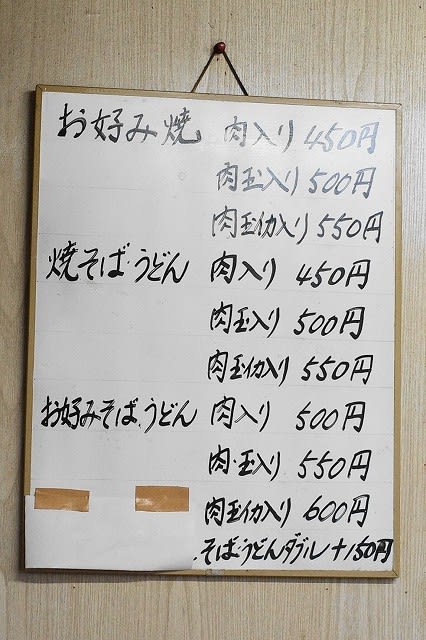 お好み焼 肉入り 450円
肉玉入り 500円
肉玉イカ入り 550円
焼そば・うどん 肉入り 450円
肉玉入り 500円
肉玉イカ入り 550円
お好みそば、うどん 肉入り 500円
肉・玉入り 550円
肉玉イカ入り 600円
そば・うどんダブル+150円